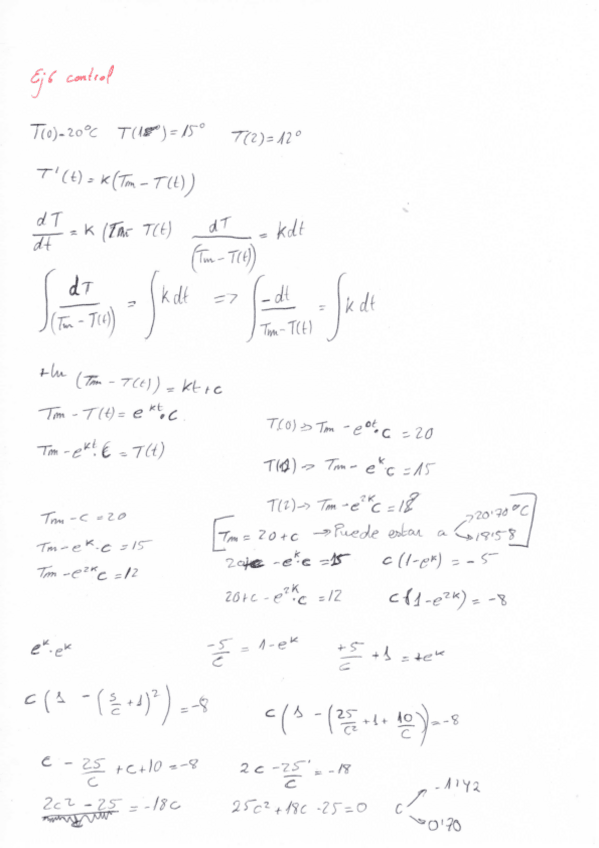 Ej 6 control
T(0)=20°C T(1)=15° T(2)=12°
T'(t)=K(Tm-T(t))
dT/dt = K(Tm-T(t) dT/(Tm-T(t)) = kdt
∫dT/(Tm-T(t)) = ∫k dt => ∫-dt/Tm-T(t) = ∫k dt
+ln (Tm-T(t)) = kt+c
Tm-T(t)=e^kt·C
T(0)=>Tm-e^0t·C=20
Tm-e^kt·C=T(t)
T(1)->Tm-e^kC=15
T(2)->Tm-e^2kC=12
Tm-C=20
[Tm=20+C -> Puede estar a 20'70°C 18'58]
Tm-e^k·C=15
20+c-e^k·c=15 C(1-e^k)=-5
Tm-e^2kC=12
20+C-e^2k·C=12 C(1-e^2k)=-8
e^k·e^k -5/C = 1-e^k +5/C +1=+e^k
C(1-(5/C+1)^2)=-8
C(1-(25/C^2+1+10/C)=-8
C-25/C+C+10=-8 2C-25/C=-18
2C^2-25=-18C 25C^2+18C-25=0 C -1'42 0'70